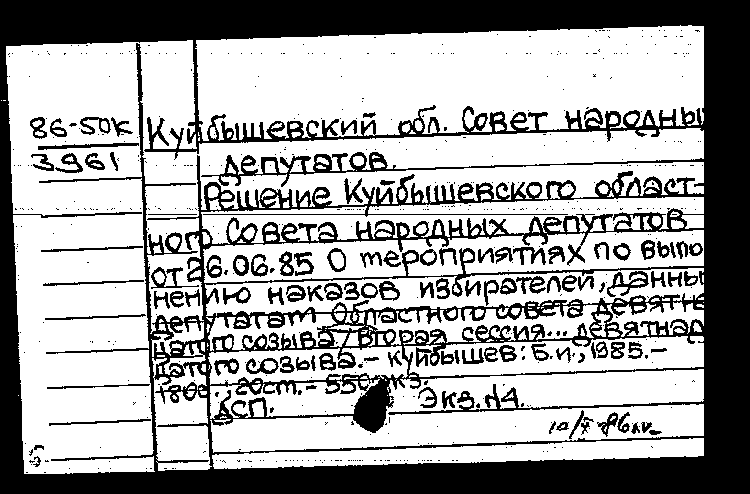 86-50К
3961
Куйбышевский обл. Совет народны
депутатов.
Решение Куйбышевского област-
ного Совета народных депутатов
от 26.06.85 О мероприятиях по выпо
нению наказов избирателей, данны
депутатам Областного совета девятна
дцатого созыва / Вторая сессия... девятнад
цатого созыва. - Куйбышев: Б.и., 1985.-
180с.; 20см. - 550 экз.
ДСП. Экз. №4.